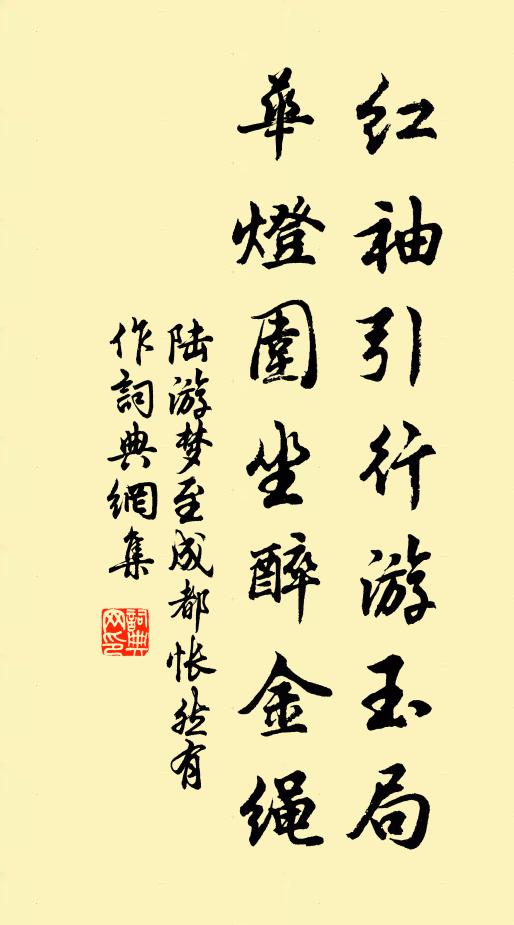 红袖引行游玉局
華燈圍坐醉金绳
陆游梦至成都怅然有
作詞典網集
詞典
网印